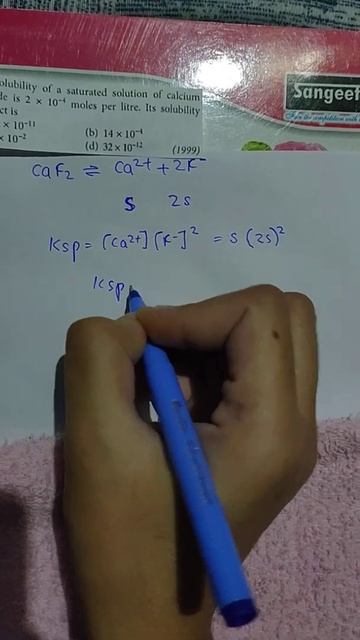 olubility of a saturated solution of calcium
de is 2 × 10⁻⁴ moles per litre. Its solubility
ct is
× 10⁻¹¹ (b) 14 × 10⁻⁴
× 10⁻² (d) 32 × 10⁻¹²
(1999)
Sangeet
CaF₂ ⇌ Ca²⁺ + 2F⁻
S 2s
Ksp = [Ca²⁺] [F⁻]² = s (2s)²
Ksp